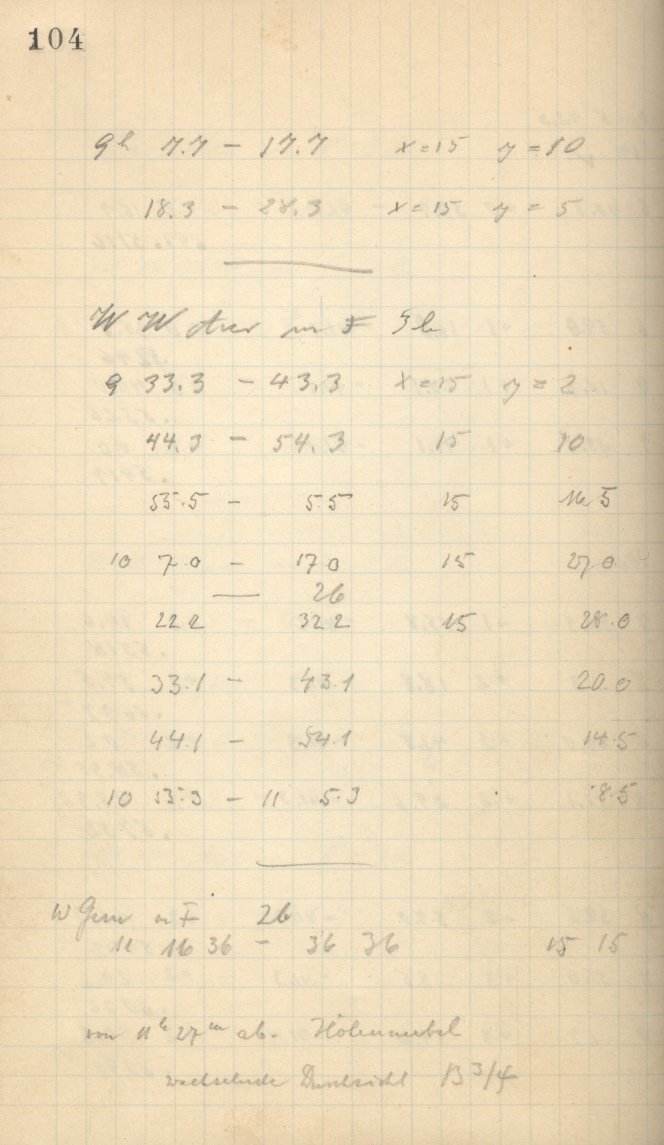 104
9h 7.7 – 17.7 x=15 y=10
18.3 – 28.3 x=15 y=5
W W F
9 33.3 – 43.3 x=15 y=2
44.3 – 54.3 15 10
55.5 – 5.5 15 16 5
10 7.0 – 17 0 15 27 0
— 26
22 2 32 2 15 28.0
33.1 – 43.1 20.0
44.1 – 54.1 14.5
10 55.3 – 11 5.3 8.5
W Gem F 26
11 16 36 – 36 36 15 15
von 11h 27m ab. Höhennebel
wechselnde Durchsicht B 3/4